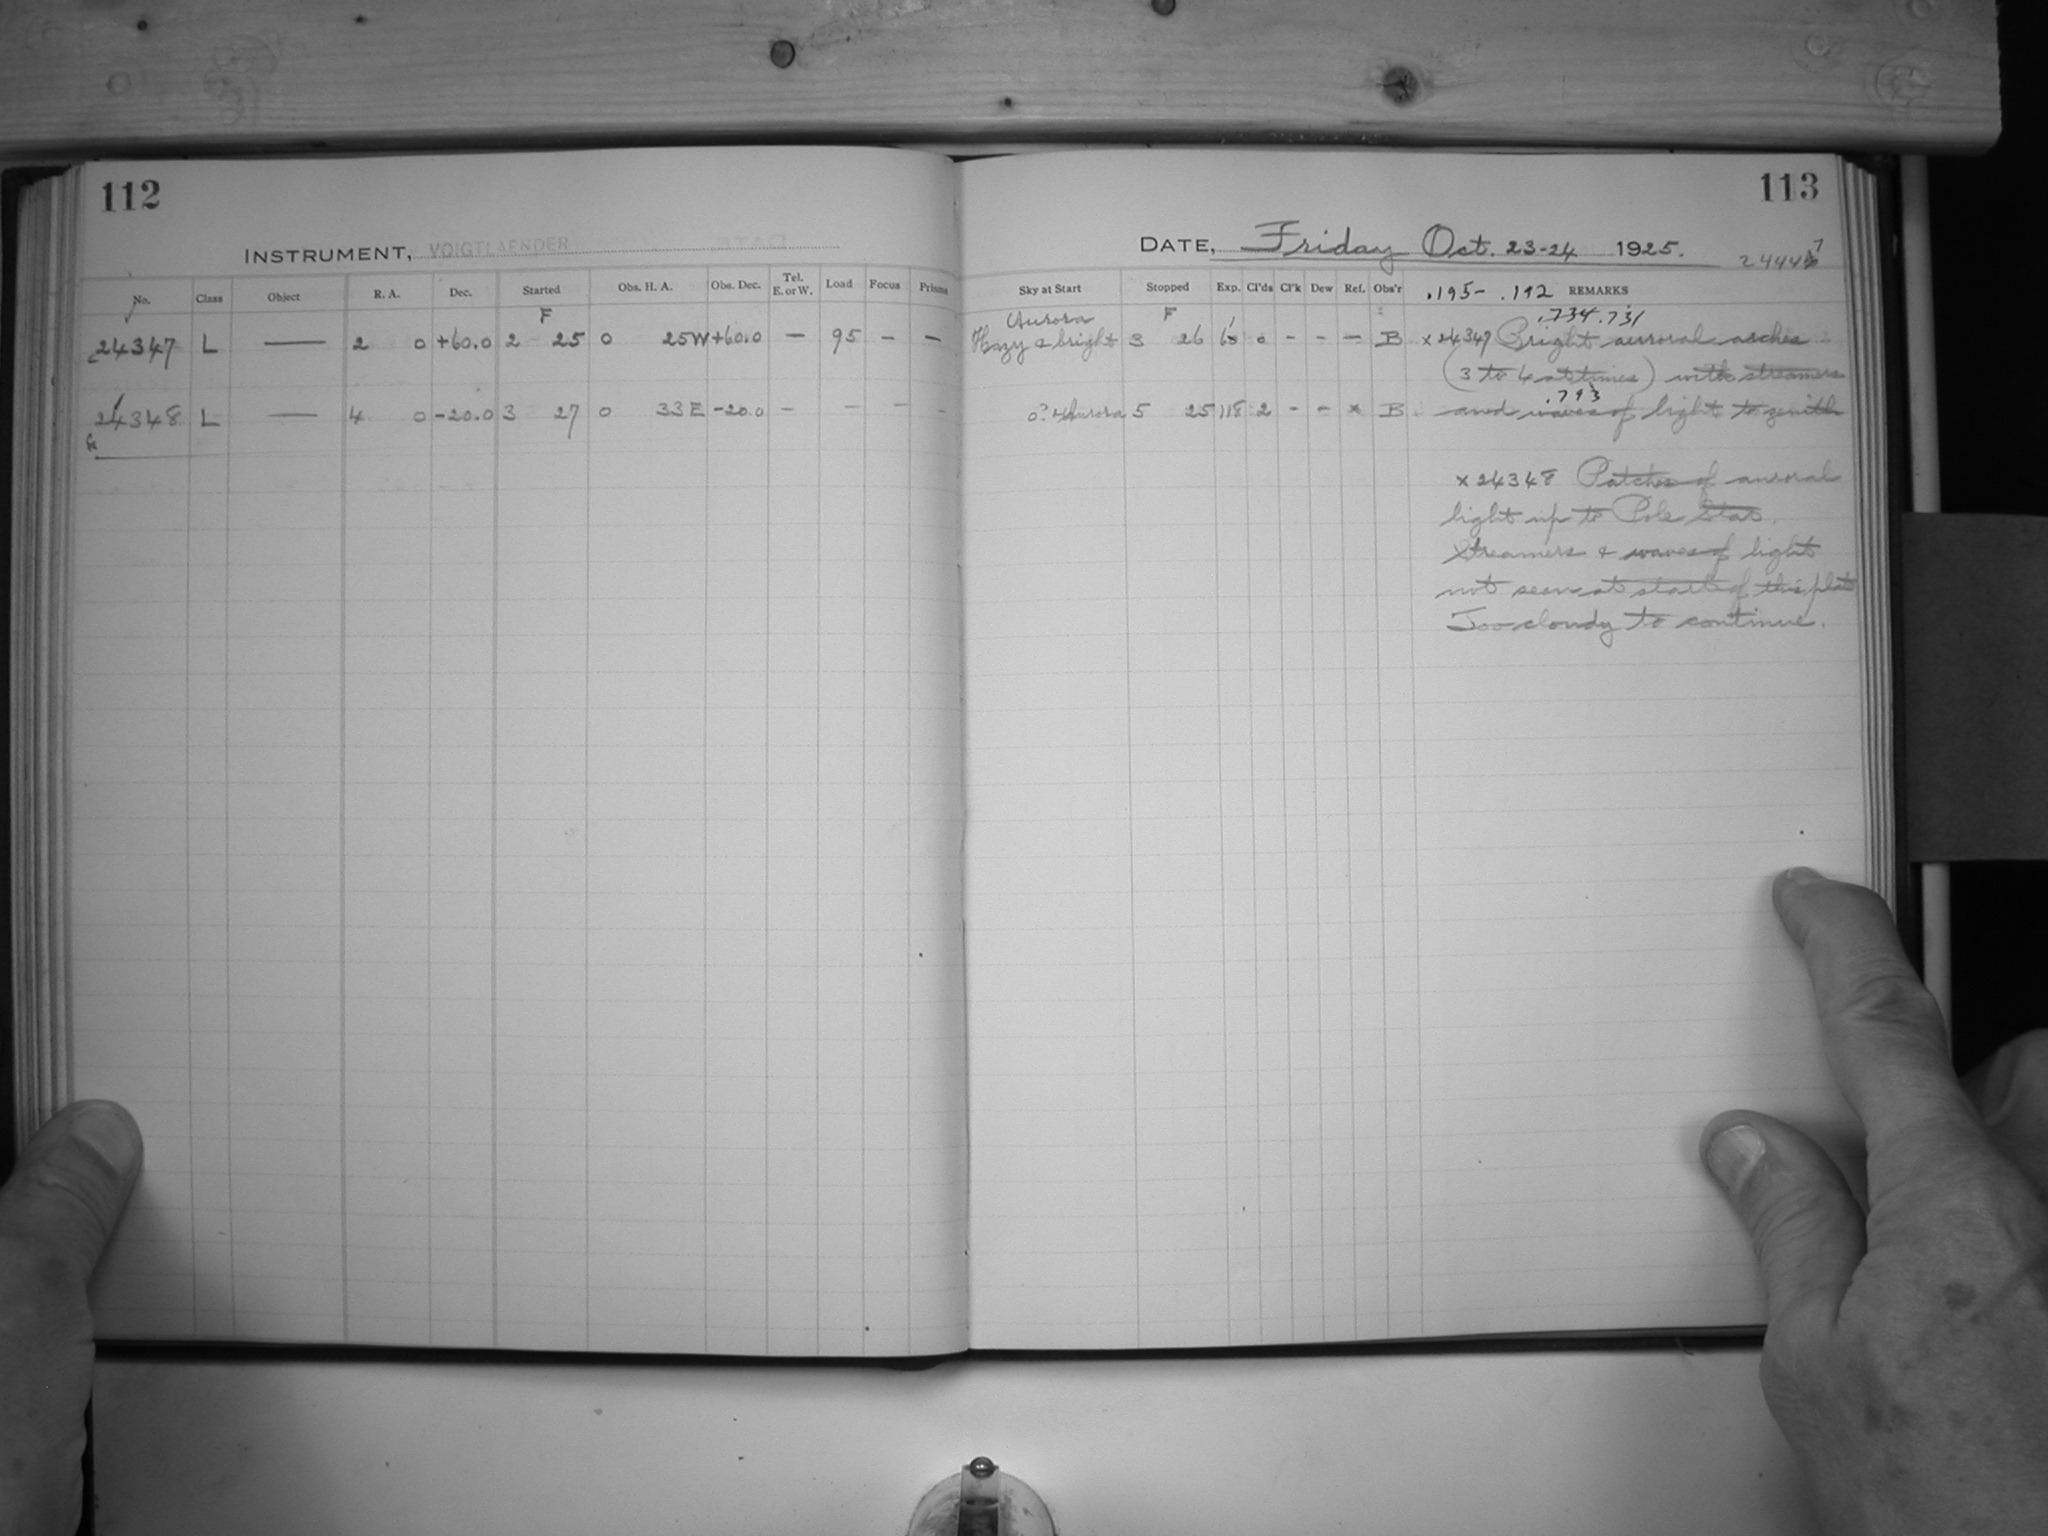 112
INSTRUMENT, VOIGTLAENDER
No. Class Object R. A. Dec. Started Obs. H. A. Obs. Dec. Tel. E. or W. Load Focus Prisms
F
24347 L — 2 0 +60.0 2 25 0 25W +60.0 — 95 – –
24348 L — 4 0 -20.0 3 27 0 33E -20.0 – – – –
113
DATE, Friday Oct. 23-24 1925.
Sky at Start Stopped Exp. Cl'ds Cl'k Dew Ref. Obs'r .195- .192 REMARKS
Aurora F .734 .731
Hazy & bright 3 26 0 - - — B x 24347 Bright auroral arches
(3 to 4 at times) with streamers
.793
0? Aurora 5 25 118 2 - - x B and waves of light to zenith
x 24348 Patches of auroral
light up to Pole Star.
Streamers & waves of light
not seen at start of this plate
Too cloudy to continue.